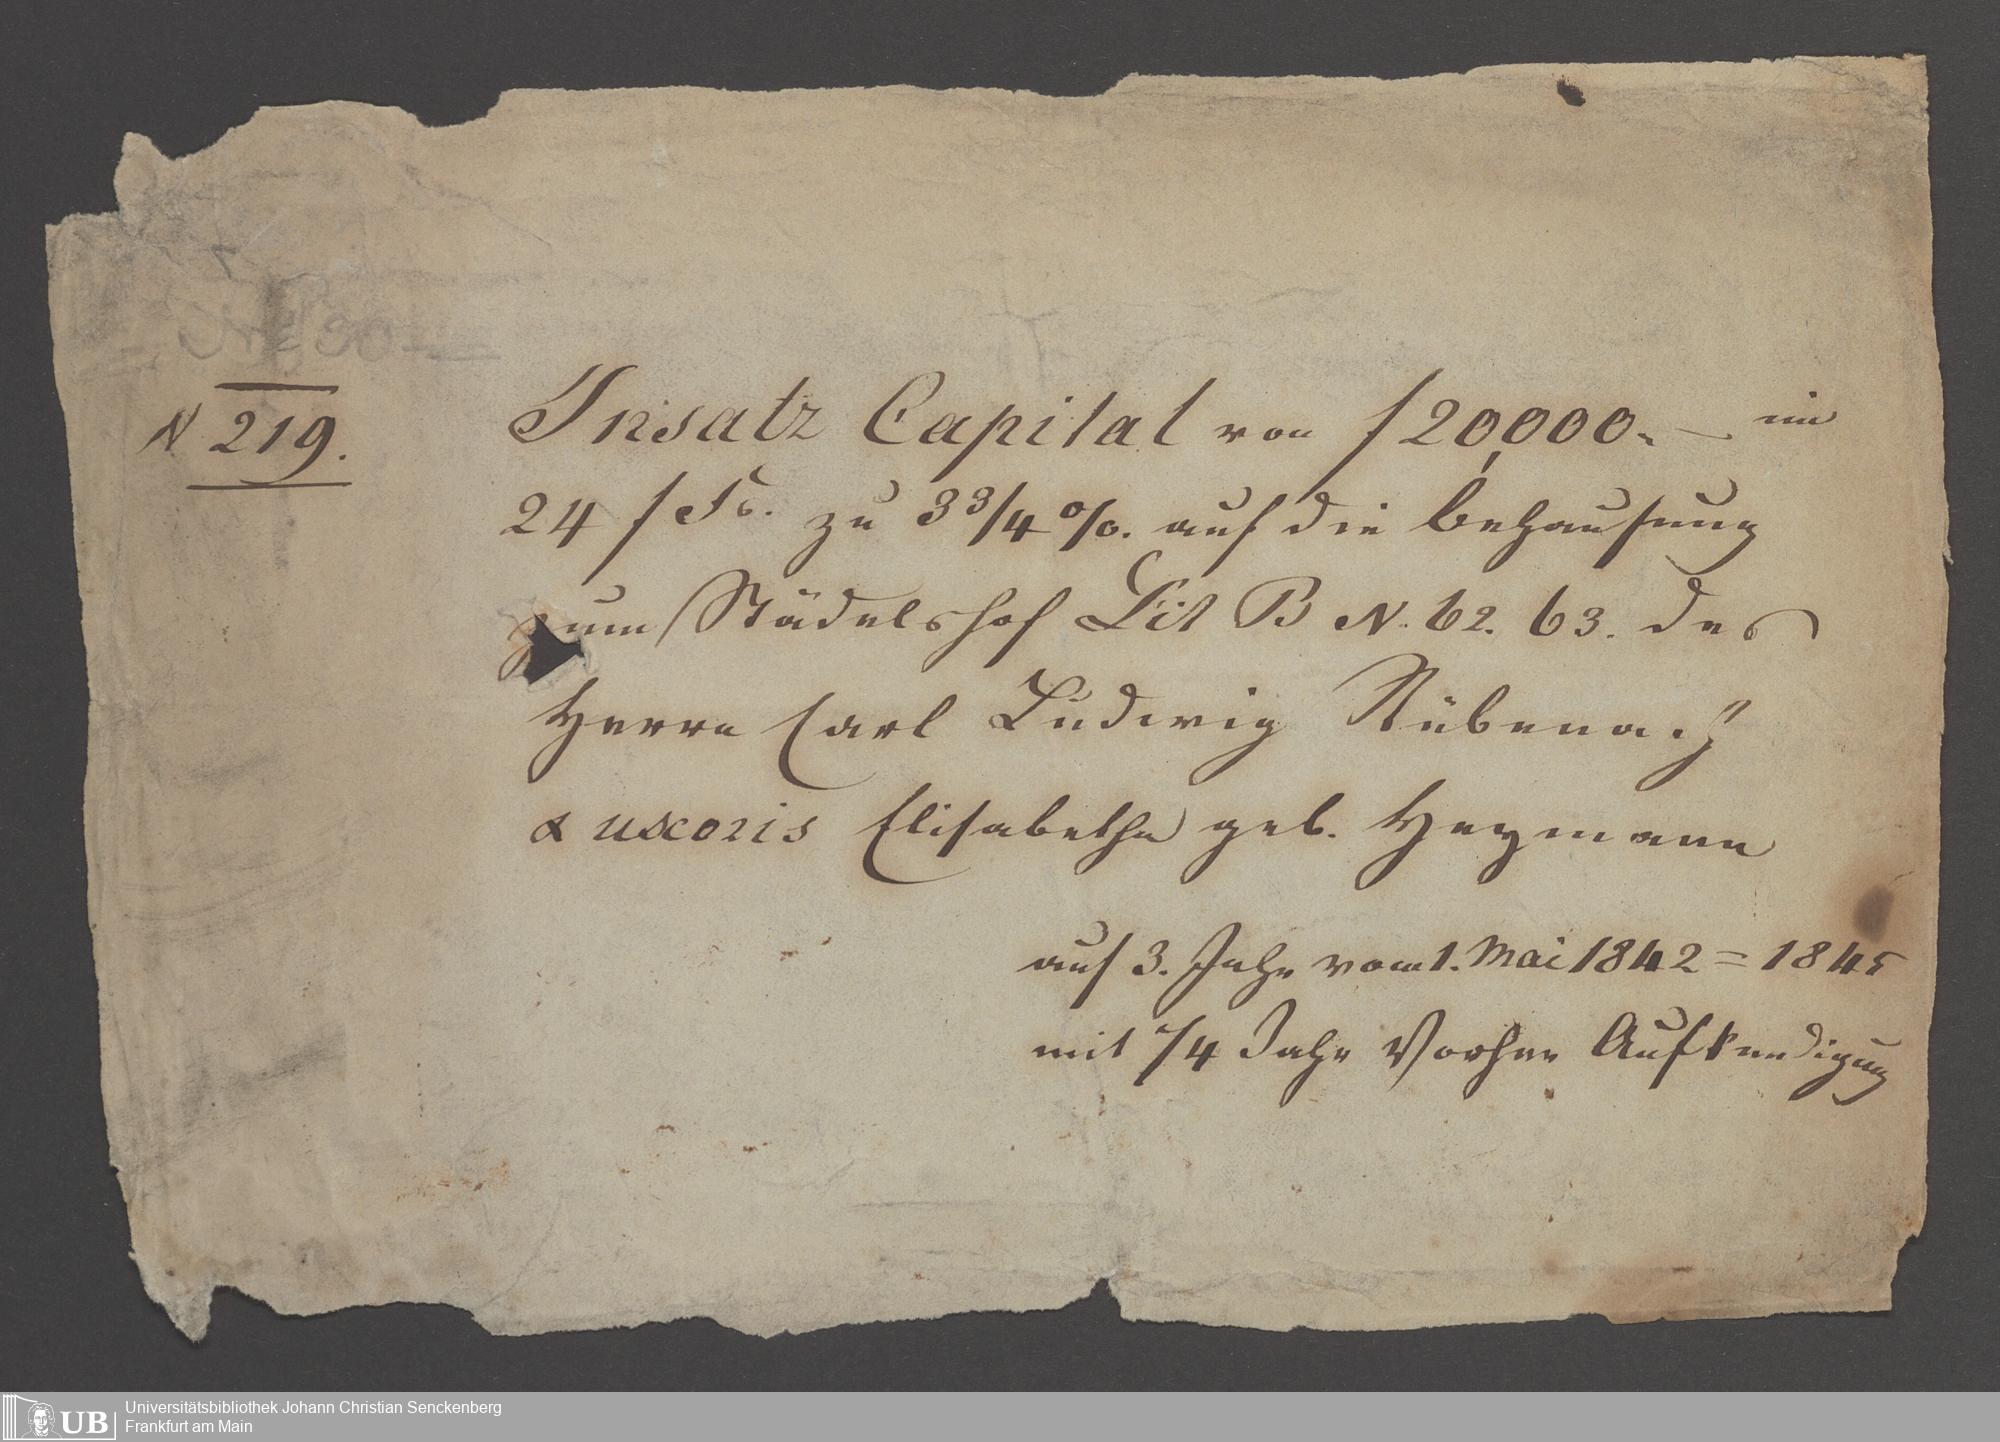 N 219.
Insatz Capital von f 20,000. — im
24 f Fs. zu 3 3/4 %. auf die Behausung
zum Städelshof Lit B N. 62. 63. des
Herrn Carl Ludwig Rübenach
& uxoris Elisabetha geb. Heymann
auf 3. Jahr vom 1. Mai 1842 = 1845
mit 1/4 Jahr Vorher Aufkündigung
UB
Universitätsbibliothek Johann Christian Senckenberg
Frankfurt am Main